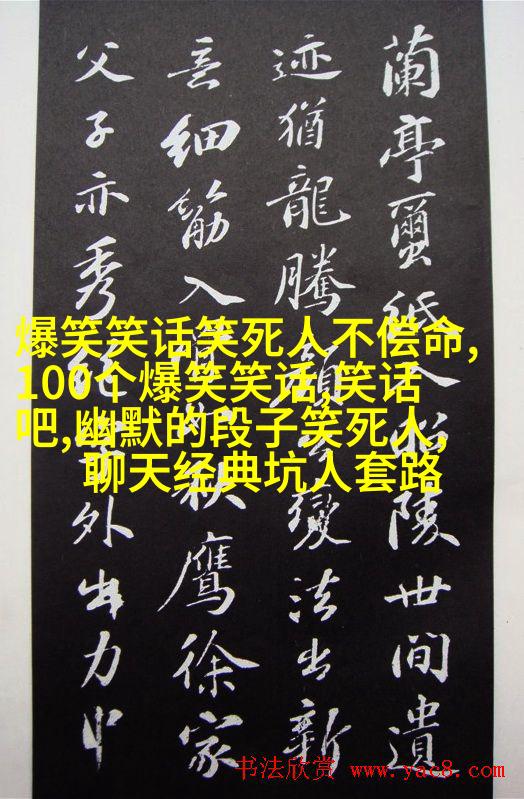 蘭亭蠒紙入昭陵世間遺
迹猶龍騰顏公變法出新
意細筋入秋鷹徐家
父子亦秀絕外出力中
爆笑笑话笑死人不偿命,
100个爆笑笑话,笑话
吧,幽默的段子笑死人,
聊天经典坑人套路
书法欣赏 www.yac8.com